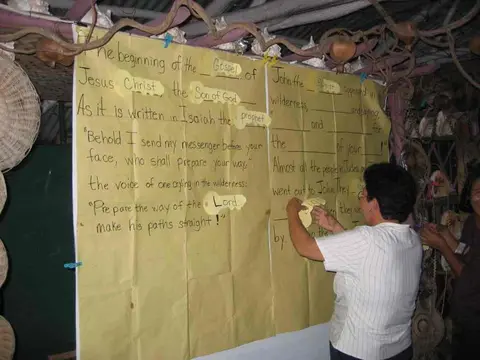 The beginning of the Gospel of
Jesus Christ the Son of God.
As it is written in Isaiah the prophet
"Behold I send my messenger before your
face, who shall prepare your way,"
the voice of one crying in the wilderness:
"Prepare the way of the Lord,
make his paths straight!"
John the appeared
wilderness,
and for
the of your !
Almost all the people Judea
went out to John the
by